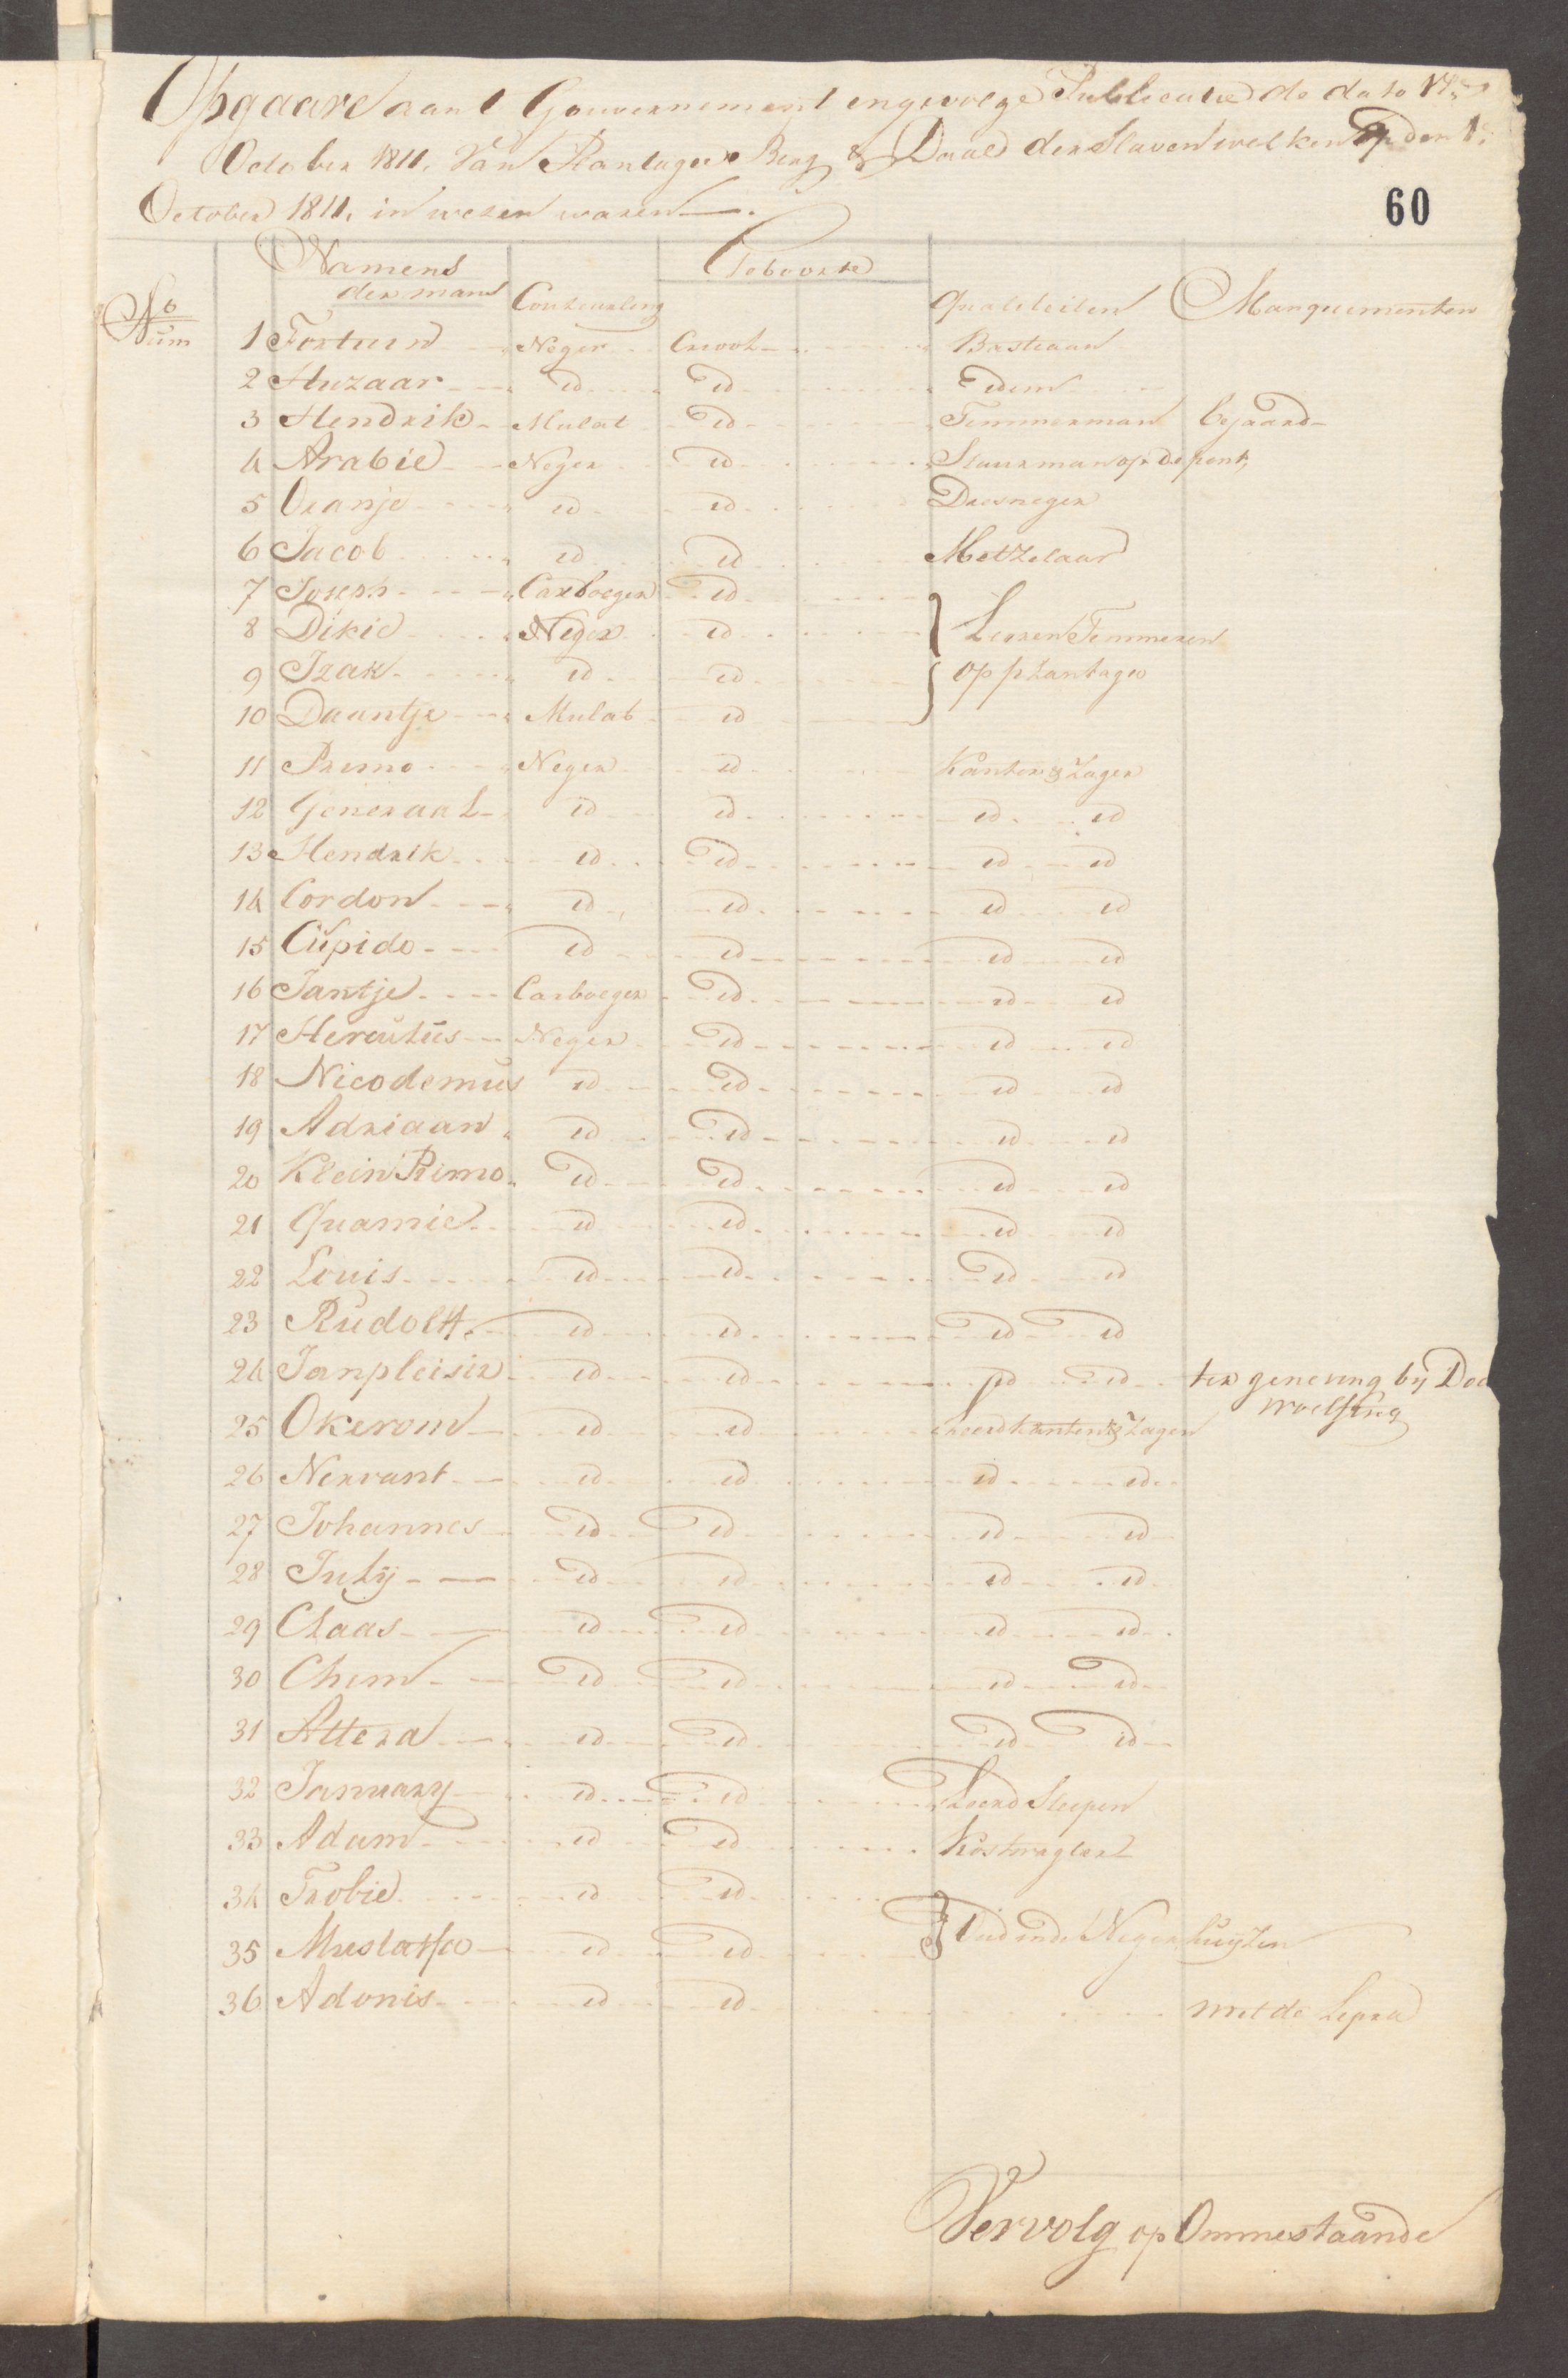 Opgaave aan t Gouvernement ingevolge Publicatie de dato
October 1811. Van Plantagie Berg & Daal der Slaven welken op den 1e
October 1811. in wezen waren
60
No Num Namens der mans Couleuring Geboorte qualiteiten Manquementen
1 Fortuin Neger Creool Bastiaan
2 Huzaar id id Idem
3 Hendrik Mulat id Timmerman bejaard
4 Arabie Neger id Stuurman op de pont
5 Oranje id id Dresneger
6 Jacob id id Metzelaar
7 Joseph Carboeger id
8 Dikie Neger id Leeren Timmeren
9 Izak id id op plantagie
10 Daantje Mulat id
11 Primo Neger id Kanten & Zager
12 Generaal id id id id
13 Hendrik id id id id
14 Cordon id id id id
15 Cupido id id id id
16 Jantje Carboeger id id id
17 Herculus Neger id id id
18 Nicodemus id id id id
19 Adriaan id id id id
20 Klein Primo id id id id
21 Quamie id id id id
22 Louis id id id id
23 Rudolff id id id id
24 Janpleisir id id id id ter geneezing by Do
25 Okerom id id Leerd kanten & Zagen
26 Nervant id id id id
27 Johannes id id id id
28 July id id id id
29 Claas id id id id
30 Chim id id id id
31 Attera id id id id
32 January id id Leerd Slepen
33 Adam id id Kostwagter
34 Frobie id id
35 Mustaffa id id Oud inde Neger huijzen
36 Adonis id id met de Lepra
Vervolg op Ommestaande